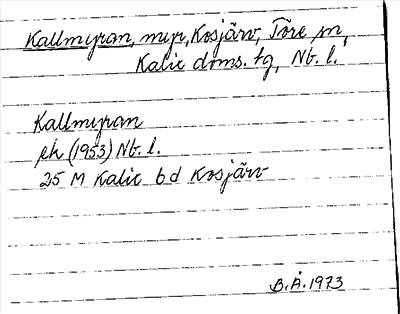 Kallmyran, myr, Kosjärv, Töre sn,
Kalix doms. tg, Nb. l.
Kallmyran
ek (1953) Nb. l.
25 M Kalix 6d Kosjärv
B.Å. 1973